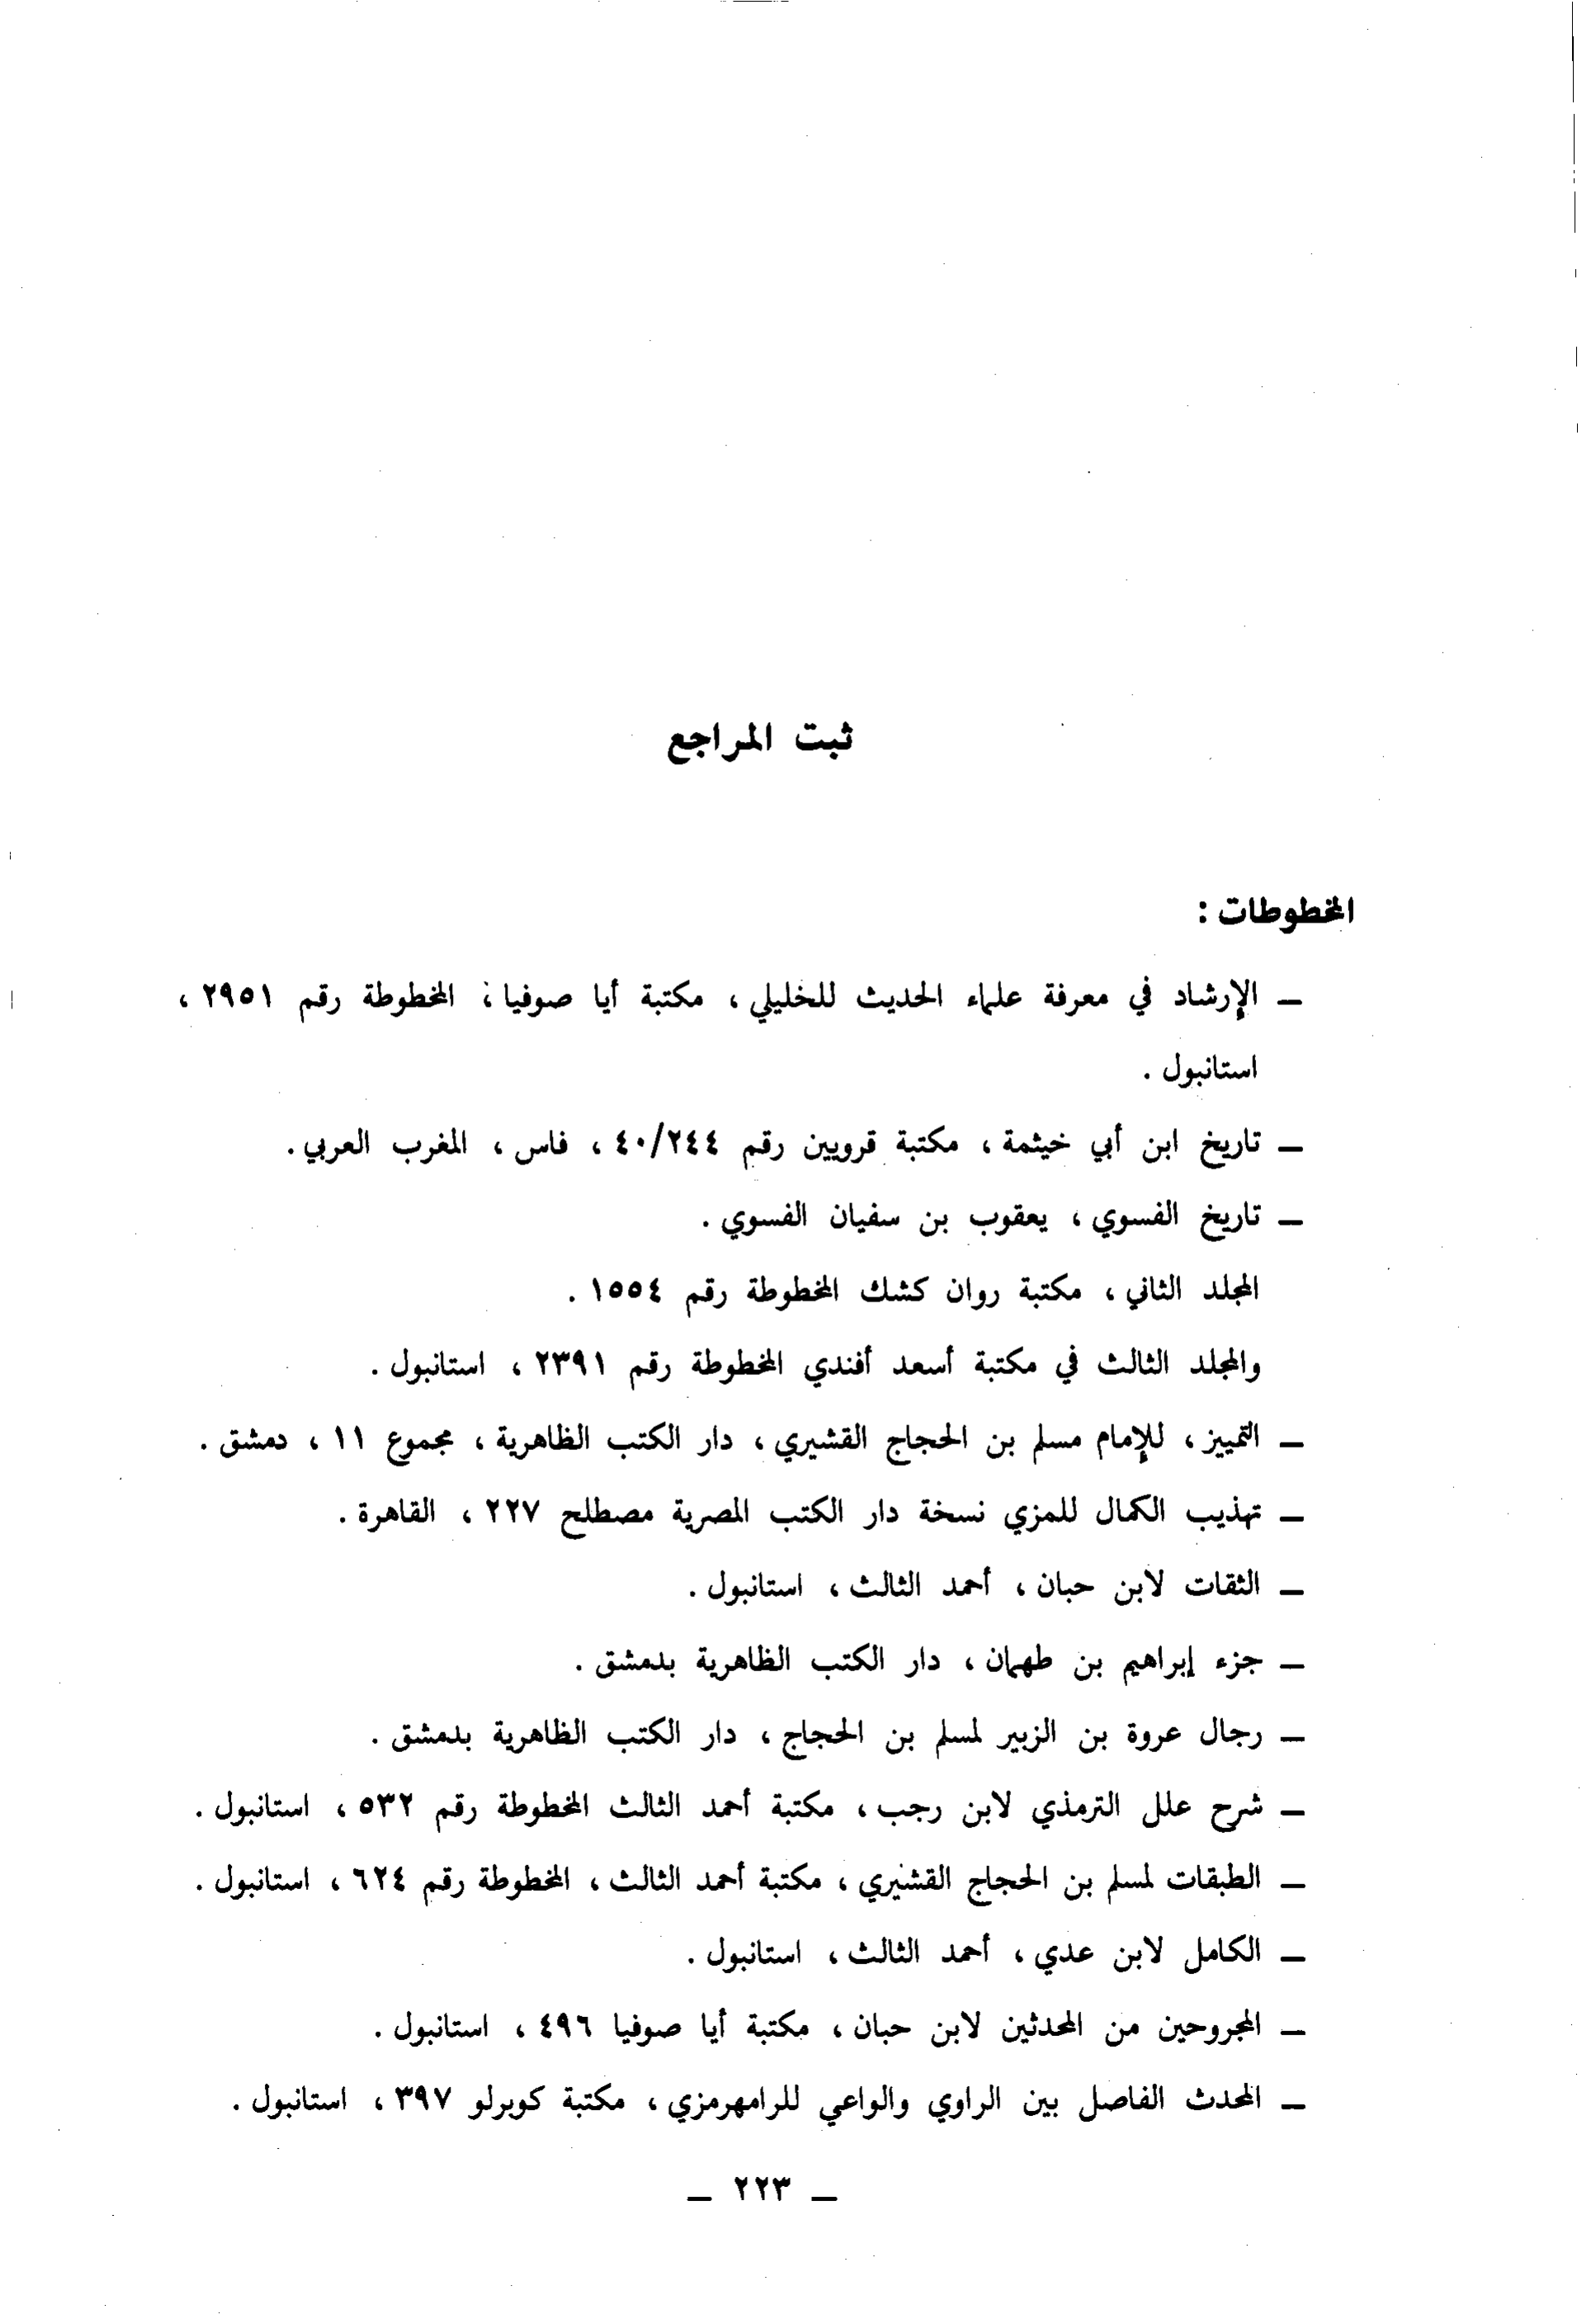 ثبت المراجع
المخطوطات :
ــ الإرشاد في معرفة علماء الحديث للخليلي ، مكتبة أيا صوفيا ؛ المخطوطة رقم ٢٩٥١ ،
استانبول .
ــ تاريخ ابن أبي خيثمة ، مكتبة قرويين رقم ٤٠/٢٤٤ ، فاس ، المغرب العربي .
ــ تاريخ الفسوي ، يعقوب بن سفيان الفسوي .
المجلد الثاني ، مكتبة روان كشك المخطوطة رقم ١٥٥٤ .
والمجلد الثالث في مكتبة أسعد أفندي المخطوطة رقم ٢٣٩١ ، استانبول .
ــ التمييز ، للإمام مسلم بن الحجاج القشيري ، دار الكتب الظاهرية ، مجموع ١١ ، دمشق .
ــ تهذيب الكمال للمزي نسخة دار الكتب المصرية مصطلح ٢٢٧ ، القاهرة .
ــ الثقات لابن حبان ، أحمد الثالث ، استانبول .
ــ جزء إبراهيم بن طهمان ، دار الكتب الظاهرية بدمشق .
ــ رجال عروة بن الزبير لمسلم بن الحجاج ، دار الكتب الظاهرية بدمشق .
ــ شرح علل الترمذي لابن رجب ، مكتبة أحمد الثالث المخطوطة رقم ٥٣٢ ، استانبول .
ــ الطبقات لمسلم بن الحجاج القشيري ، مكتبة أحمد الثالث ، المخطوطة رقم ٦٢٤ ، استانبول .
ــ الكامل لابن عدي ، أحمد الثالث ، استانبول .
ــ المجروحين من المحدثين لابن حبان ، مكتبة أيا صوفيا ٤٩٦ ، استانبول .
ــ المحدث الفاصل بين الراوي والواعي للرامهرمزي ، مكتبة كوبرلو ٣٩٧ ، استانبول .
ــ ٢٢٣ ــ